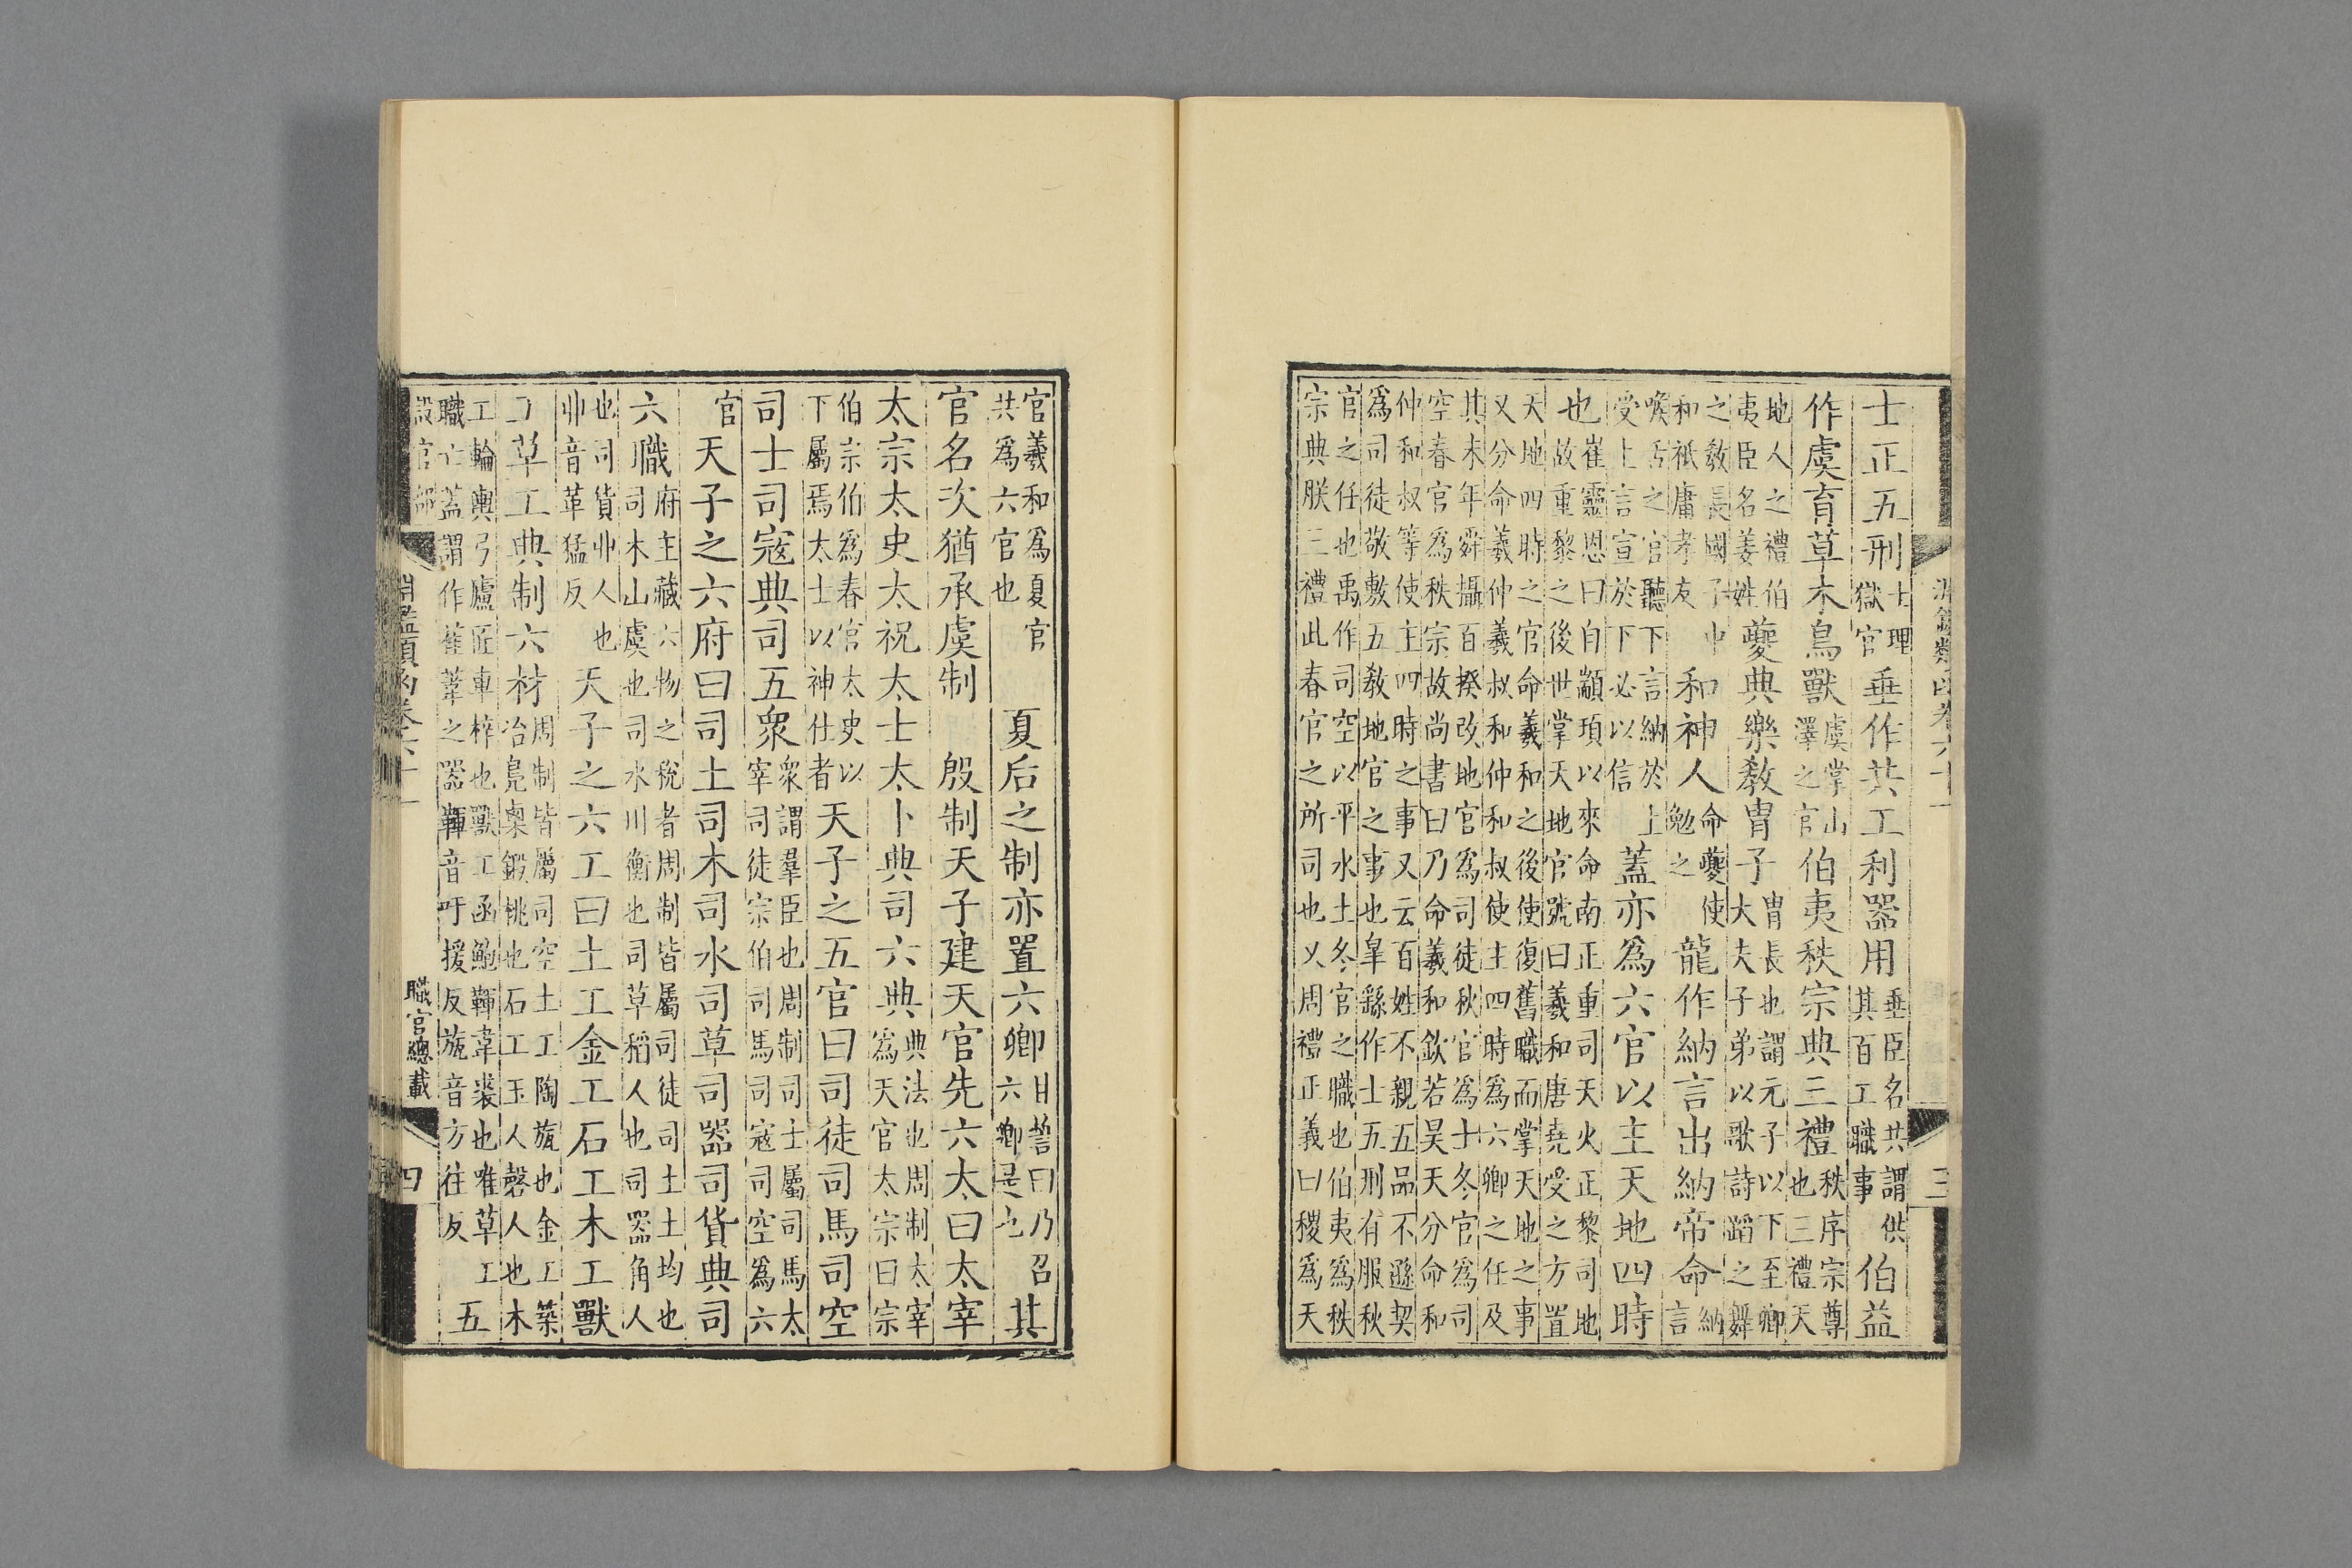 淵鑑類函卷六十一 三
士正五刑士理獄官垂作共工利器用垂臣名共謂供其百工職事伯益
作虞育草木鳥獸虞掌山澤之官伯夷秩宗典三禮秩序宗尊也三禮天
地人之禮伯夷臣名姜姓夔典樂教冑子冑長也謂元子以下至卿大夫子弟以歌詩蹈之舞
之教長國子中和祗庸孝友和神人命夔使勉之龍作納言出納帝命納言
喉舌之官聽下言納於上受上言宣於下必以信蓋亦為六官以主天地四時
也崔靈恩曰自顓頊以來命南正重司天火正黎司地故重黎之後世掌天地官號曰羲和唐堯受之方置
天地四時之官命羲和之後使復舊職而掌天地之事又分命羲仲羲叔和仲和叔使主四時為六卿之任及
其末年舜攝百揆改地官為司徒秋官為士冬官為司空春官為秩宗故尚書曰乃命羲和欽若昊天分命和
仲和叔等使主四時之事又云百姓不親五品不遜契為司徒敬敷五教地官之事也皐繇作士五刑有服秋
官之任也禹作司空以平水土冬官之職也伯夷為秩宗典朕三禮此春官之所司也乂周禮正義曰稷為天
官羲和為夏官共為六官也 夏后之制亦置六卿甘誓曰乃召六卿是也其
官名次猶承虞制 殷制天子建天官先六太曰太宰
太宗太史太祝太士太卜典司六典典法也周制太宰為天官太宗曰宗
伯宗伯為春官太史以下屬焉太士以神仕者天子之五官曰司徒司馬司空
司士司寇典司五眾眾謂羣臣也周制司士屬司馬太宰司徒宗伯司馬司寇司空為六
官 天子之六府曰司土司木司水司草司器司貨典司
六職府主藏六物之稅者周制皆屬司徒司土土均也司木山虞也司水川衡也司草稻人也司器角人
也司貨丱人也丱音革猛反天子之六工曰土工金工石工木工獸
工草工典制六材周制皆屬司空土工陶旊也金工築冶鳧㮚鍛桃也石工玉人磬人也木
工輪輿弓廬匠車梓也獸工函鮑韗韋裘也唯草工職亡蓋謂作萑葦之器韗音吁援反旊音方往反五
設官部 淵鑑類函卷六十一 職官總載 四